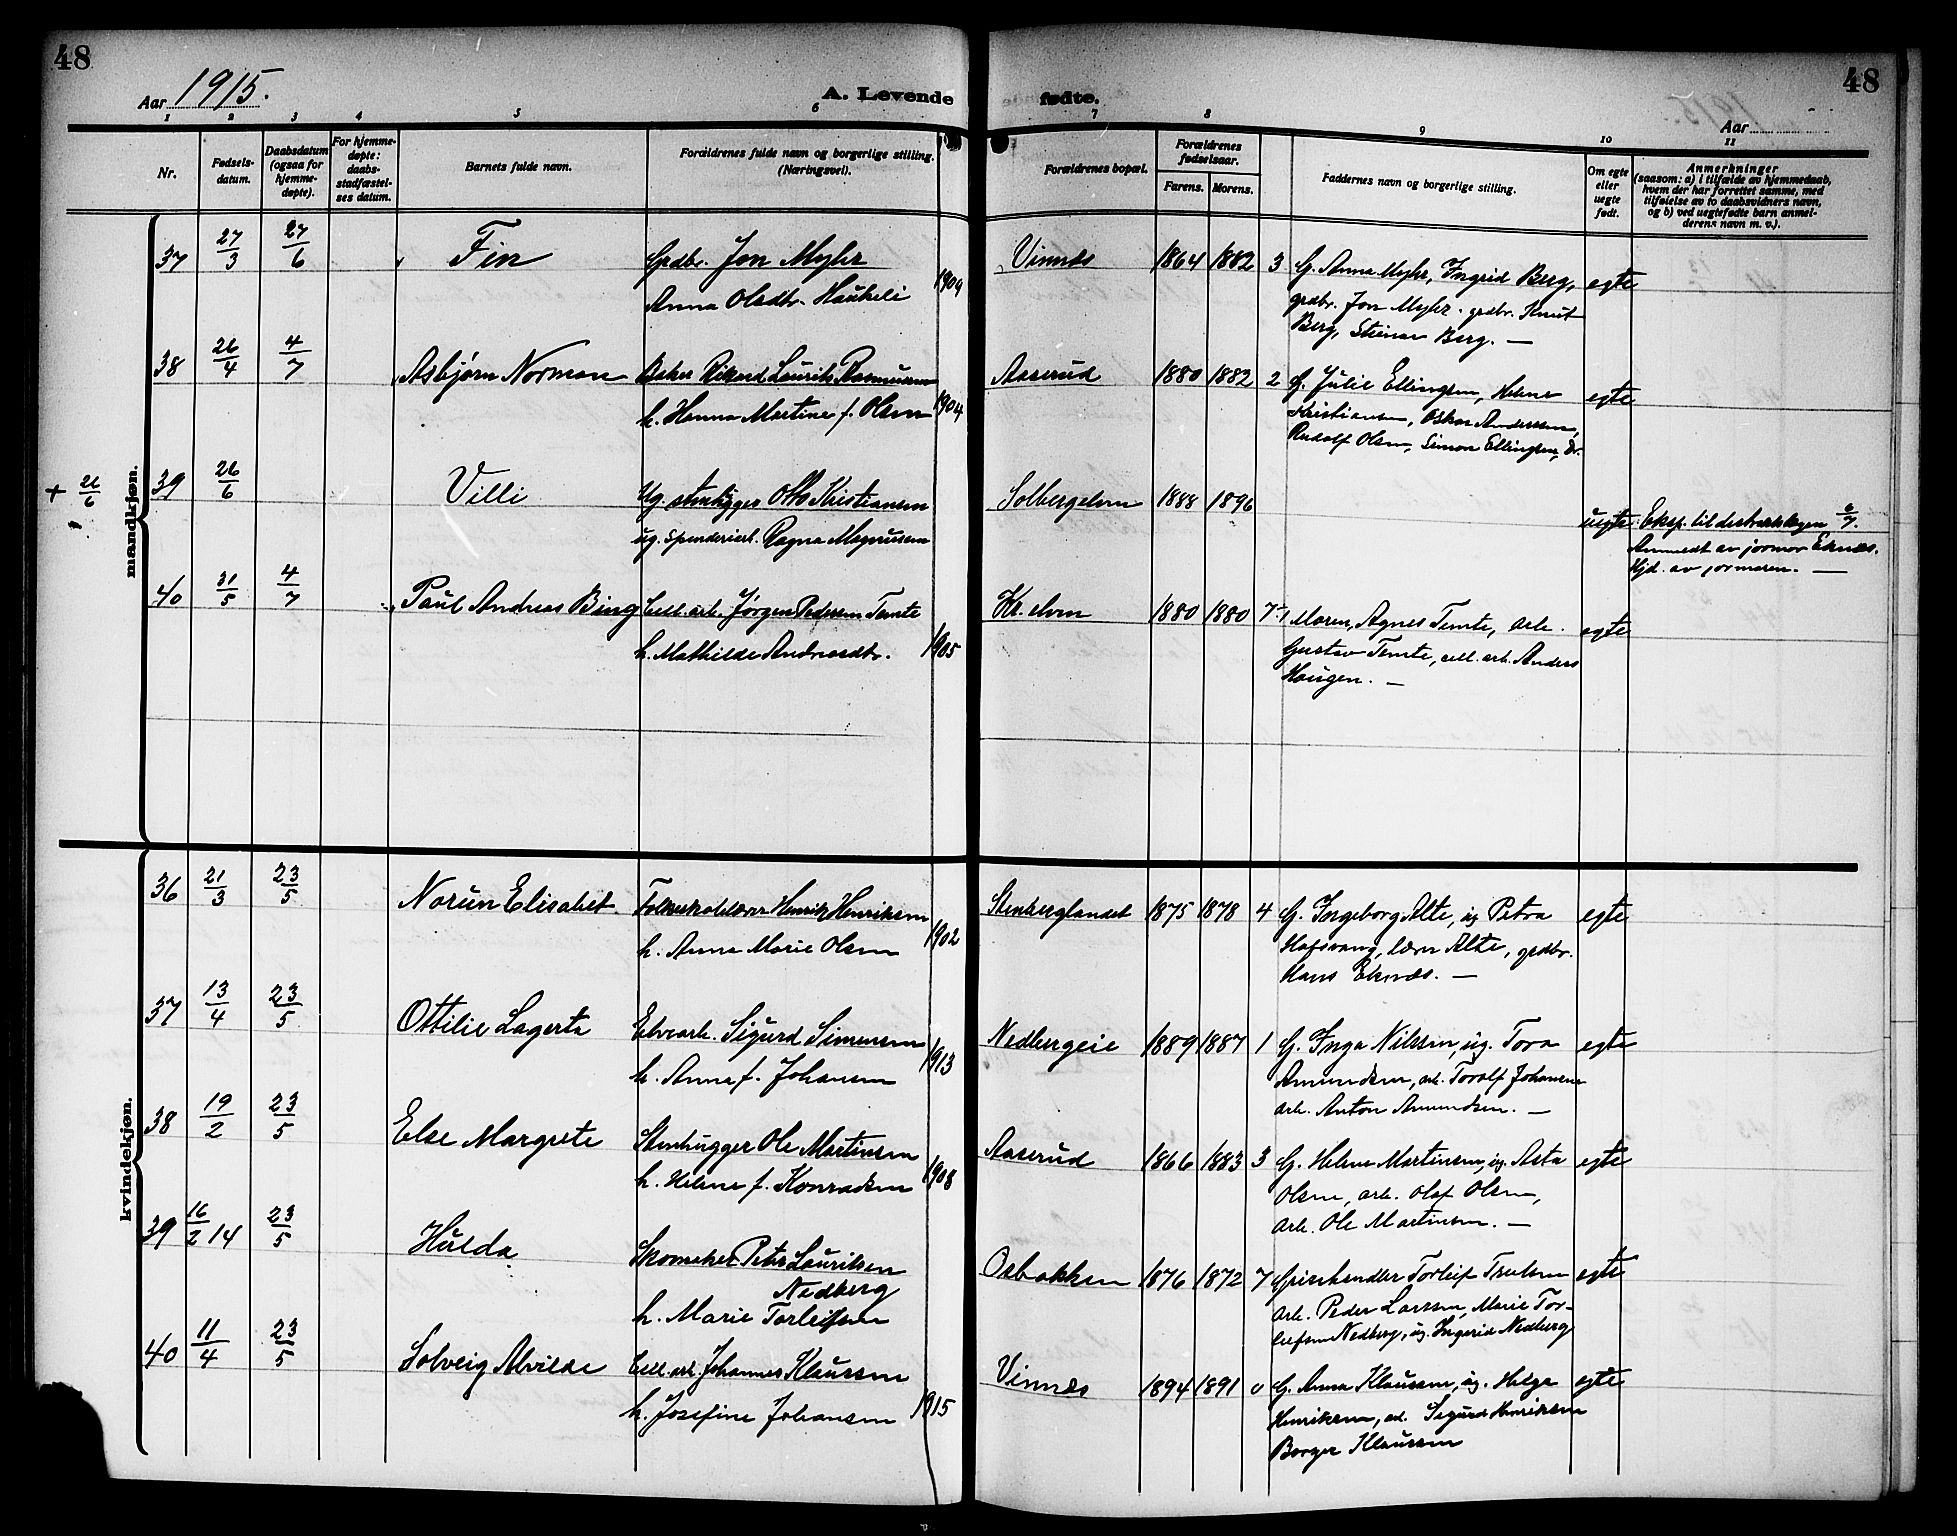 48
Aar 1915.
A. Levende
1 2 3 4 5 6
Nr.
Fødsels-
datum.
Daabsdatum
(ogsaa for
hjemme-
døpte).
For hjemme-
døpte:
daabs-
stadfæstel-
ses datum.
Barnets fulde navn.
Forældrenes fulde navn og borgerlige stilling.
(Næringsvei).
mandkjøn.
37 27/3 27/6 Fin Grdbr. Jon Myhr
Anna Olsdtr. Haukeli 1909
38 26/4 4/7 Asbjørn Norman Baker Rikard Laurits Rasmussen
h. Hanna Martine f. Olsen 1904
+ 26/6 39 26/6 Villi Ug. stenhugger Otto Kristiansen
ug. spinderiarb. Ragna Magnussen
40 31/5 4/7 Paul Andreas Bing Cell. arb. Jørgen Pedersen Temte
h. Mathilde Andreasdtr. 1905
kvindekjøn.
36 21/3 23/5 Norun Elisabet Folkeskolelærer Henrik Henriksen
h. Anna Marie Olsen 1902
37 13/4 23/5 Ottilie Lagerta Elvearb. Sigurd Simensen
h. Anna f. Johansen 1913
38 19/2 23/5 Else Margrete Stenhugger Ole Martinsen
h. Helene f. Konradsen 1908
39 16/2 14 23/5 Hulda Skomaker Peter Lauritsen
Nedberg
h. Marie Torleifsen
40 11/4 23/5 Solveig Alvilde Cell. arb. Johannes Klaussen
h. Josefine Johansen 1915
48
fødte.
Aar
7 8 9 10 11
Forældrenes bopæl.
Forældrenes
fødselsaar.
Farens. Morens.
Faddernes navn og borgerlige stilling.
Om egte
eller
uegte
født.
Anmerkninger
(saasom: a) i tilfælde av hjemmedaab,
hvem der har forrettet samme, med
tilføielse av to daabsvidners navn,
og b) ved uegtefødte barn anmel-
derens navn m. v.).
Vinnæs 1864 1882 3 G. Anna Myhr, Ingrid Berg, egte
grdbr. Jon Myhr, grdbr. Knut
Berg, Steinar Berg. —
Aaserud 1880 1882 2 G. Julie Ellingsen, Helene egte
Kristiansen, Oskar Anderssen,
Rudolf Olsen, Simon Ellingsen,
Solbergelven 1888 1896 uegte Eksp. til distriktslægen 6/7.
Anmeldt av jormor Eknæs.
Hjd. av jormoren. —
Kr. elven 1880 1880 7 Moren, Agnes Temte, arb. egte
Gustav Temte, cell. arb. Anders
Haugen. —
Stenberglandet 1875 1878 4 G. Ingeborg Alte, ug. Petra egte
Hafsvang, lærer Alte, grdbr.
Hans Eknæs. —
Nedbergeie 1889 1887 1 G. Inga Nilssen, ug. Tora egte
Amundsen, arb. Toralf Johansen
arb. Anton Amundsen. —
Aaserud 1866 1883 3 G. Helene Martinsen, ug. Asta egte
Olsen, arb. Olaf Olsen,
arb. Ole Martinsen. —
Osbakken 1876 1872 7 Torleif Trulsen egte
arb. Peder Larssen, Marie Tor-
leifsen Nedberg, ug. Ingerid Nedberg
Vinnæs 1894 1891 0 G. Anna Klaussen, ug. Helga egte
Henriksen, Sigurd Henriksen
Borger Klaussen